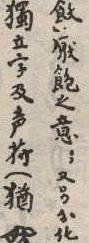 厭飽之意；又另分化
獨立字及声符（猶